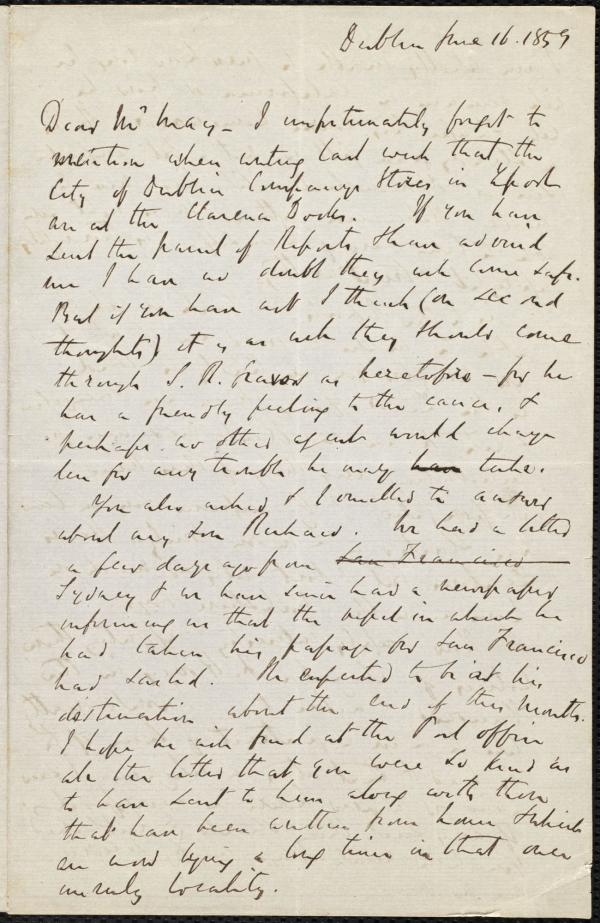 Dublin June 16. 1859
Dear Mr May - I unfortunately forgot to
mention when writing last week that the
City of Dublin Company's Stores in L'pool
are at the Clarence Docks. If you have
sent the parcel of Reports there advised
me I have no doubt they will come safe.
But if you have not I think (on second
thoughts) it is as well they should come
through S. R. Graves as heretofore - for he
has a friendly feeling to the cause, &
perhaps no other agent would charge
less for any trouble he may have take.
You also asked, & I omitted to answer
about my son Richard. We had a letter
a few days ago from San Francisco
Sydney & we have since had a newspaper
informing us that the vessel in which he
had taken his passage for San Francisco
had sailed. He expected to be at his
destination about the end of this month.
I hope he will find at the Post office
all the letters that you were so kind as
to have sent to him along with those
that have been written from home which
are now lying a long time in that over
unruly locality.